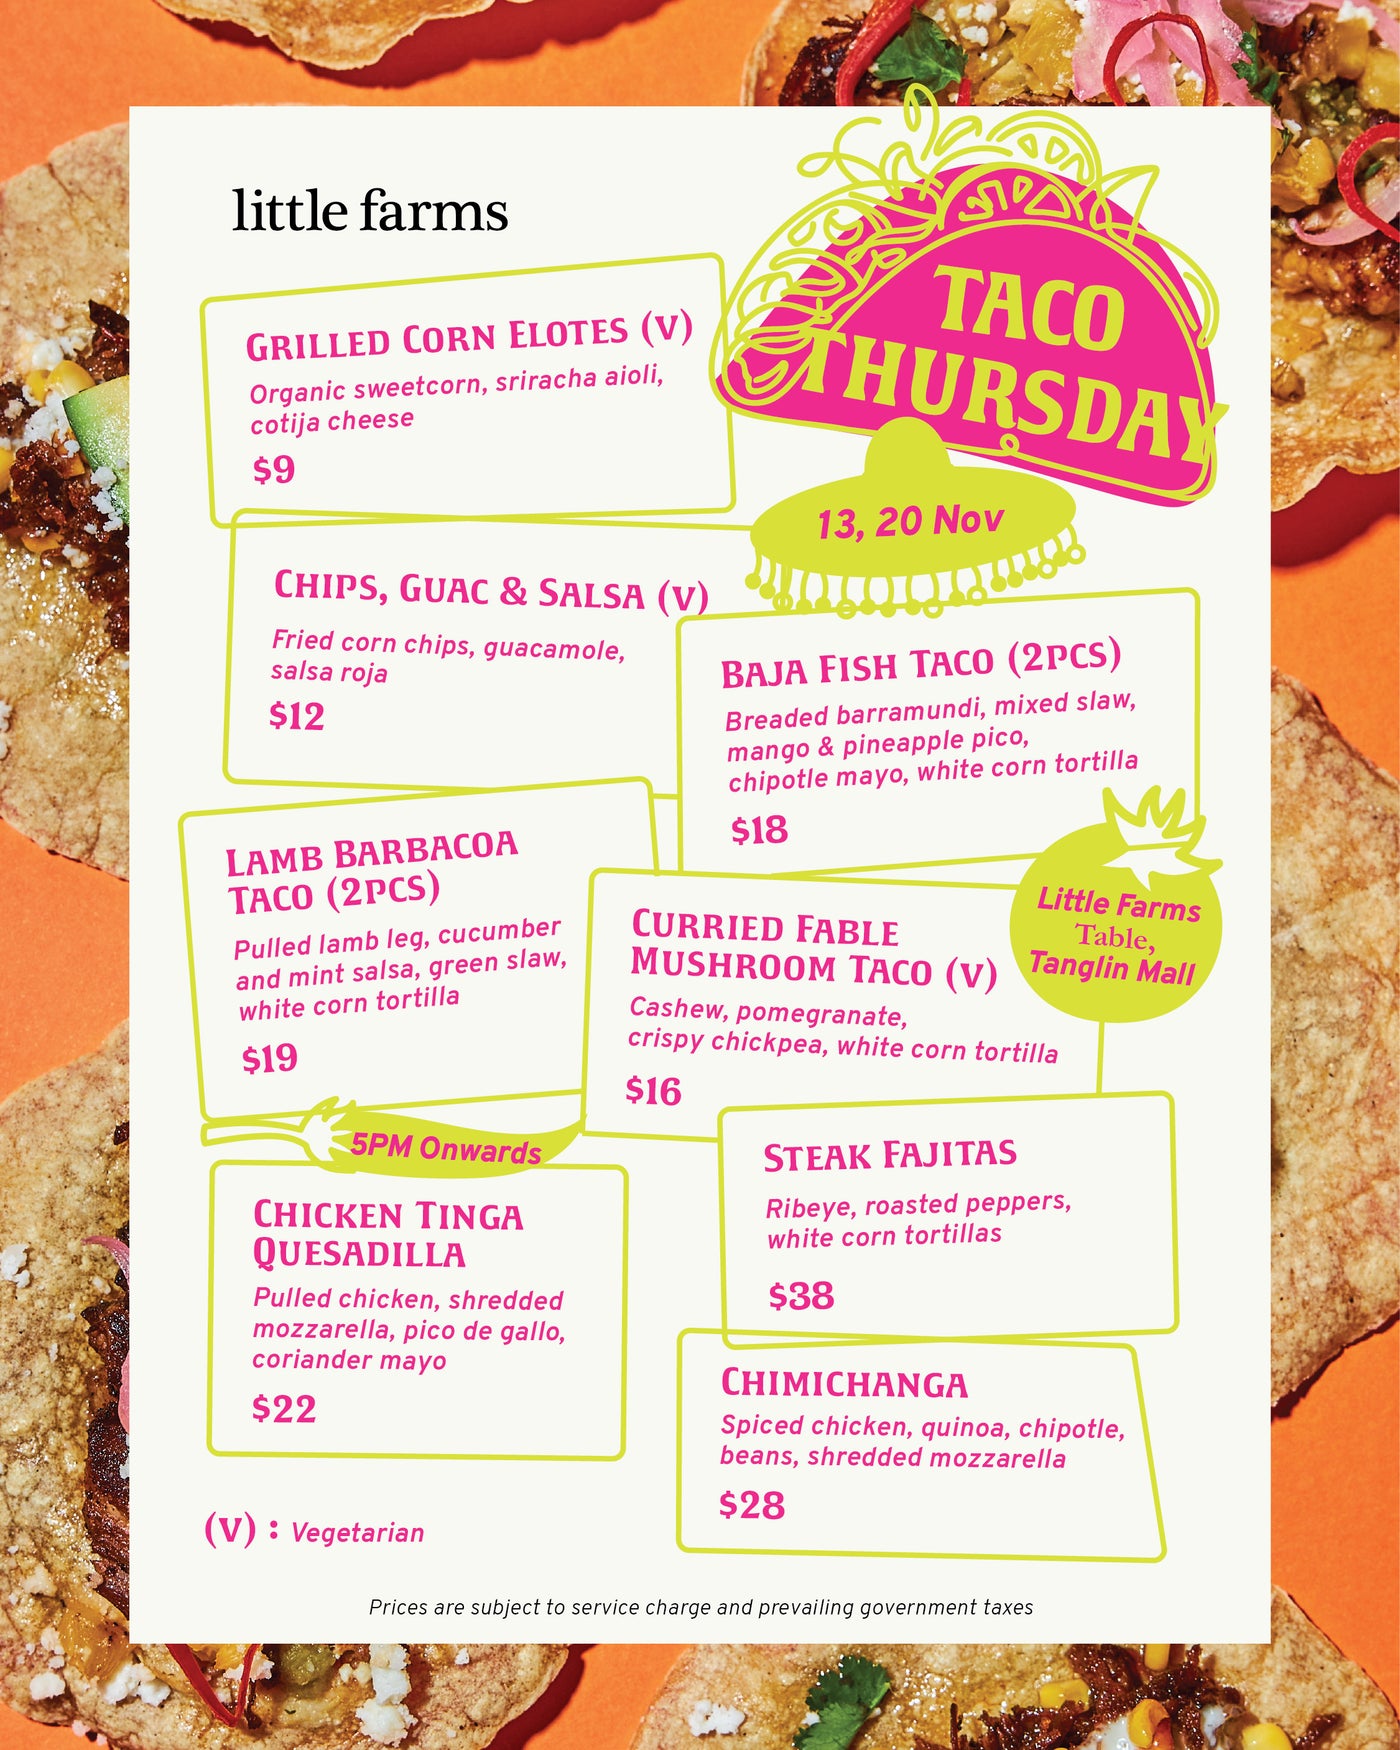 little farms
TACO
THURSDAY
13, 20 Nov
GRILLED CORN ELOTES (V)
Organic sweetcorn, sriracha aioli,
cotija cheese
$9
CHIPS, GUAC & SALSA (V)
Fried corn chips, guacamole,
salsa roja
$12
BAJA FISH TACO (2PCS)
Breaded barramundi, mixed slaw,
mango & pineapple pico,
chipotle mayo, white corn tortilla
$18
LAMB BARBACOA
TACO (2PCS)
Pulled lamb leg, cucumber
and mint salsa, green slaw,
white corn tortilla
$19
CURRIED FABLE
MUSHROOM TACO (V)
Cashew, pomegranate,
crispy chickpea, white corn tortilla
$16
Little Farms
Table,
Tanglin Mall
5PM Onwards
CHICKEN TINGA
QUESADILLA
Pulled chicken, shredded
mozzarella, pico de gallo,
coriander mayo
$22
STEAK FAJITAS
Ribeye, roasted peppers,
white corn tortillas
$38
CHIMICHANGA
Spiced chicken, quinoa, chipotle,
beans, shredded mozzarella
$28
(V) : Vegetarian
Prices are subject to service charge and prevailing government taxes